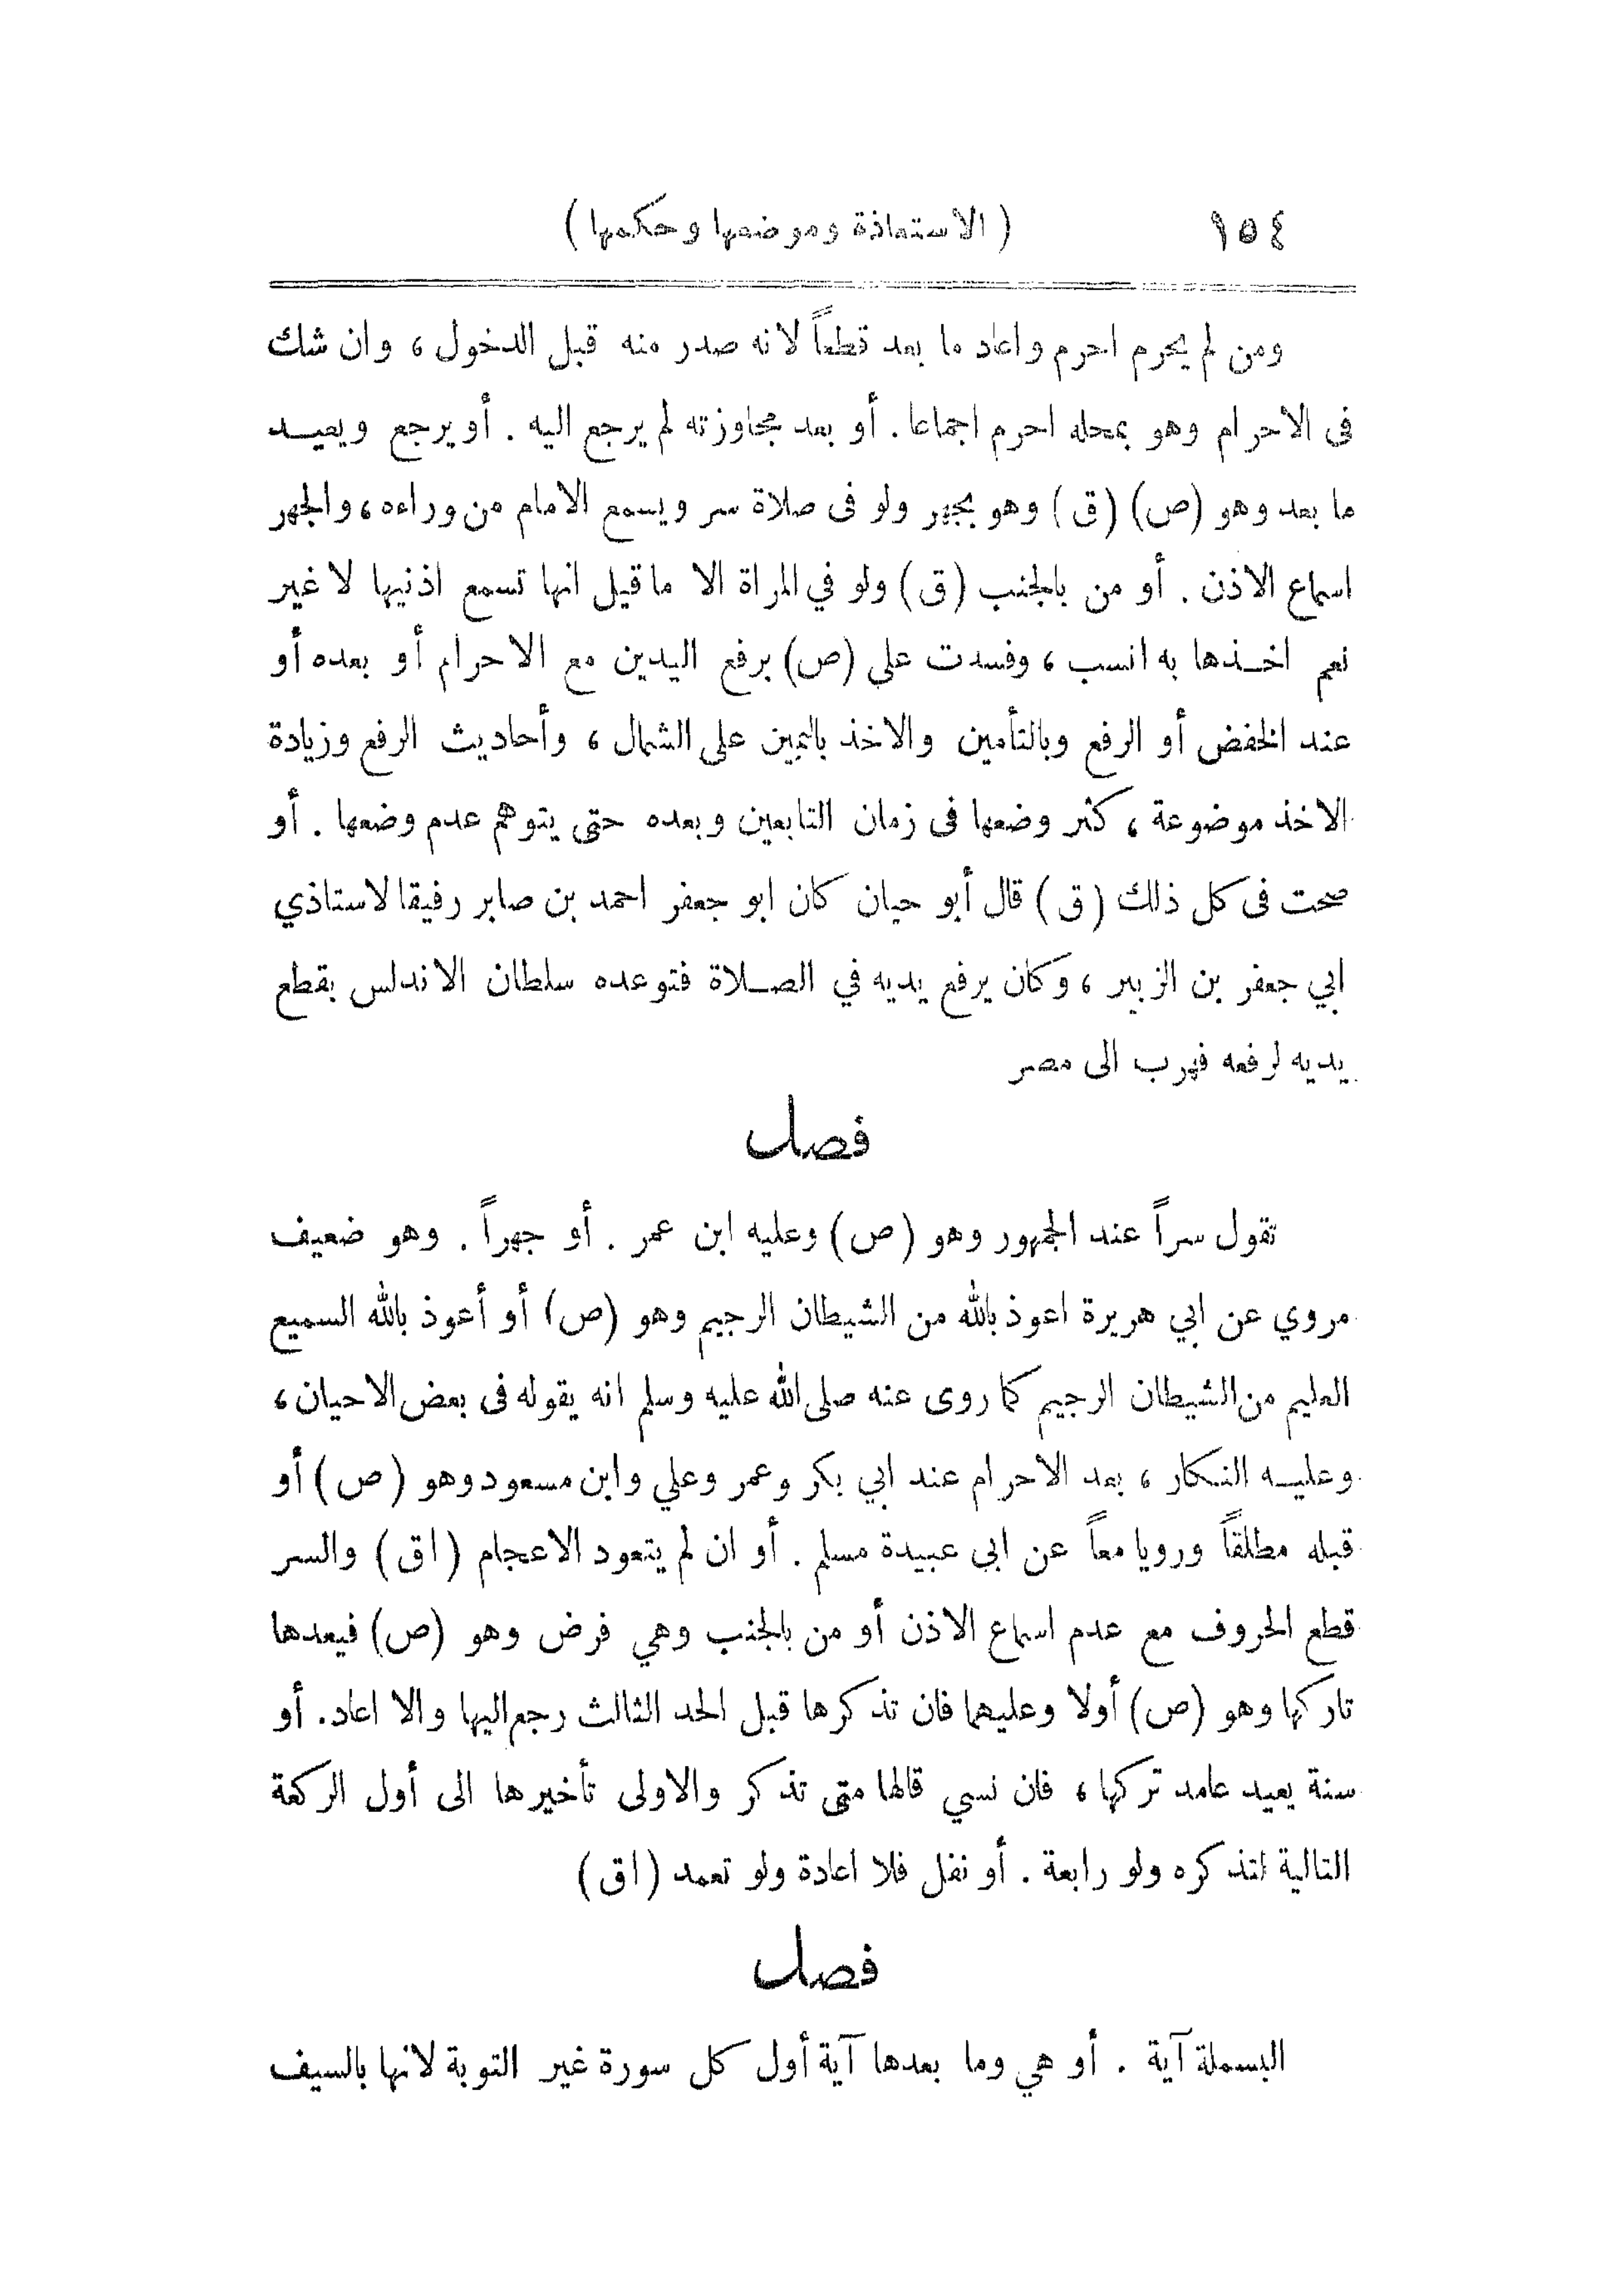 ١٥٤ ( الاستعاذة وموضعها وحكمها )
ومن لم يحرم احرم واعاد ما بعد قطعاً لانه صدر منه قبل الدخول ، وان شك
فى الاحرام وهو بمحله احرم اجماعا . أو بعد مجاوزته لم يرجع اليه . أو يرجع ويعيــد
ما بعد وهو (ص) (ق) وهو بجهر ولو فى صلاة سر ويسمع الامام من وراءه ، والجهر
اسماع الاذن . أو من بالجنب (ق) ولو في المراة الا ما قيل انها تسمع اذنيها لا غير
نعم اخـذها به انسب ، وفسدت على (ص) برفع اليدين مع الاحرام أو بعده أو
عند الخفض أو الرفع وبالتأمين والاخذ باليمين على الشمال ، وأحاديث الرفع وزيادة
الاخذ موضوعة ، كثر وضعها فى زمان التابعين وبعده حتى يتوهم عدم وضعها . أو
صحت فى كل ذلك (ق) قال أبو حيان كان ابو جعفر احمد بن صابر رفيقا لاستاذي
ابي جعفر بن الزبير ، وكان يرفع يديه في الصـلاة فتوعده سلطان الاندلس بقطع
يديه لرفعه فهرب الى مصر
فصل
تقول سراً عند الجمهور وهو (ص) وعليه ابن عمر . أو جهراً . وهو ضعيف
مروي عن ابي هريرة اعوذ بالله من الشيطان الرجيم وهو (ص) أو أعوذ بالله السميع
العليم من الشيطان الرجيم كما روى عنه صلى الله عليه وسلم انه يقوله فى بعض الاحيان ،
وعليــه النـكار ، بعد الاحرام عند ابي بكر وعمر وعلي وابن مسعود وهو (ص) أو
قبله مطلقاً ورويا معاً عن ابى عبيدة مسلم . أو ان لم يتعود الاعجام (اق) والسر
قطع الحروف مع عدم اسماع الاذن أو من بالجنب وهي فرض وهو (ص) فيعدها
تاركها وهو (ص) أولا وعليهما فان تذكرها قبل الحد الثالث رجع اليها والا اعاد. أو
سنة يعيد عامد تركها ، فان نسي قالها متى تذكر والاولى تأخيرها الى أول الركعة
التالية لتذكره ولو رابعة . أو نفل فلا اعادة ولو تعمد (اق)
فصل
البسملة آية . أو هي وما بعدها آية أول كل سورة غير التوبة لانها بالسيف